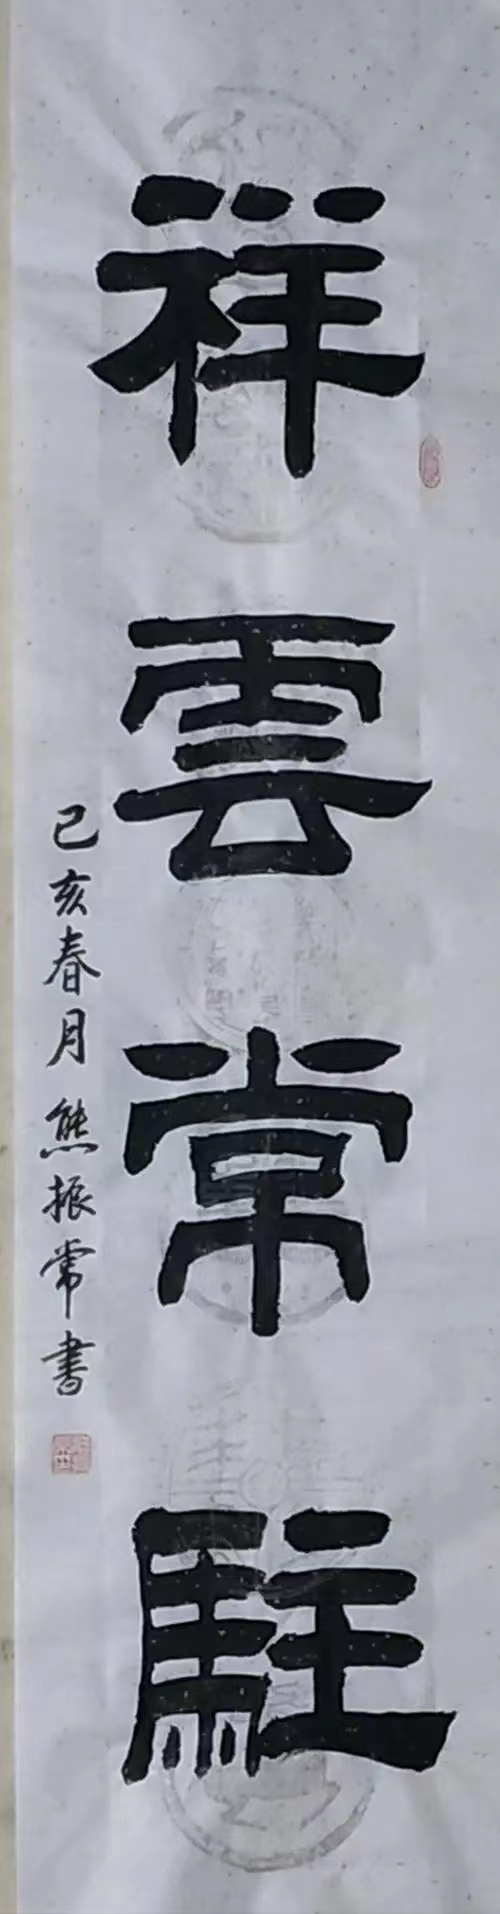 祥雲常駐
己亥春月熊振常書